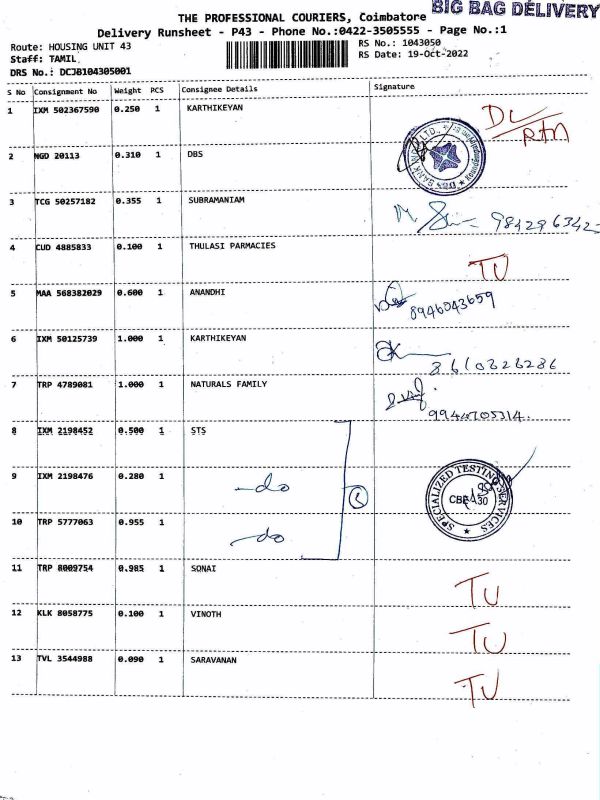 BIG BAG DELIVERY
THE PROFESSIONAL COURIERS, Coimbatore
Delivery Runsheet - P43 - Phone No.:0422-3505555 - Page No.:1
Route: HOUSING UNIT 43
RS No.: 1043050
Staff: TAMIL
RS Date: 19-Oct-2022
DRS No.: DCJB104305001
S No Consignment No Weight PCS Consignee Details Signature
1 IXM 502367590 0.250 1 KARTHIKEYAN DL
RTN
2 NGD 20113 0.310 1 DBS
3 TCG 50257182 0.355 1 SUBRAMANIAM
4 CUD 4885833 0.100 1 THULASI PARMACIES TU
5 MAA 568382029 0.600 1 ANANDHI
8946043659
6 IXM 50125739 1.000 1 KARTHIKEYAN
8610326286
7 TRP 4789081 1.000 1 NATURALS FAMILY
8 IXM 2198452 0.500 1 STS
9 IXM 2198476 0.280 1 -do
SPECIALIZED TESTING SERVICES
CBE 30
10 TRP 5777063 0.955 1 -do
11 TRP 8009754 0.985 1 SONAI TU
12 KLK 8058775 0.100 1 VINOTH TU
13 TVL 3544988 0.090 1 SARAVANAN TU